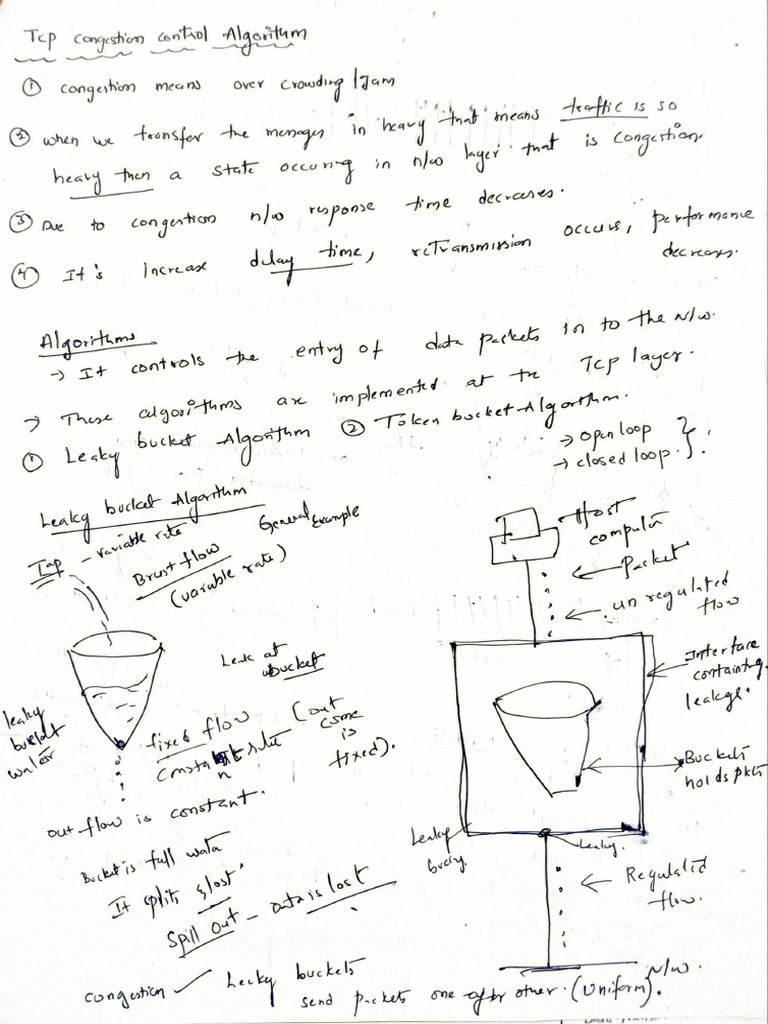 Tcp congestion control Algoritum
① congestion means over crowding / Jam
② when we transfer the menages in heavy that means traffic is so
heavy then a state occuring in n/w layer that is congestion.
③ Due to congestion n/w response time decreases.
④ It's increase delay time, reTransmission occurs, performance
decreases.
Algorithms
→ It controls the entry of data packets in to the N/w.
→ These algorithms are implemented at the Tcp layer.
① Leaky bucket Algorithm ② Token bucket Algorithm.
→ open loop
→ closed loop
Leaky bucket Algorithm
General Example
Tap - variable rate
Brust flow
(variable rate)
Host
computer
Packet
un regulated
flow
Leak at
bucket
Interface
containing
leakage.
leaky
bucket
water
fixed flow (out
come
is
fixed).
constant rate
Buckets
holds pkts
out flow is constant.
Bucket is full water
It splits & lost.
Spill out - Data is lost
Leaky
Leaky.
Regulated
flow.
N/w.
congestion ✓ Leaky buckets
send packets one after other. (Uniform).